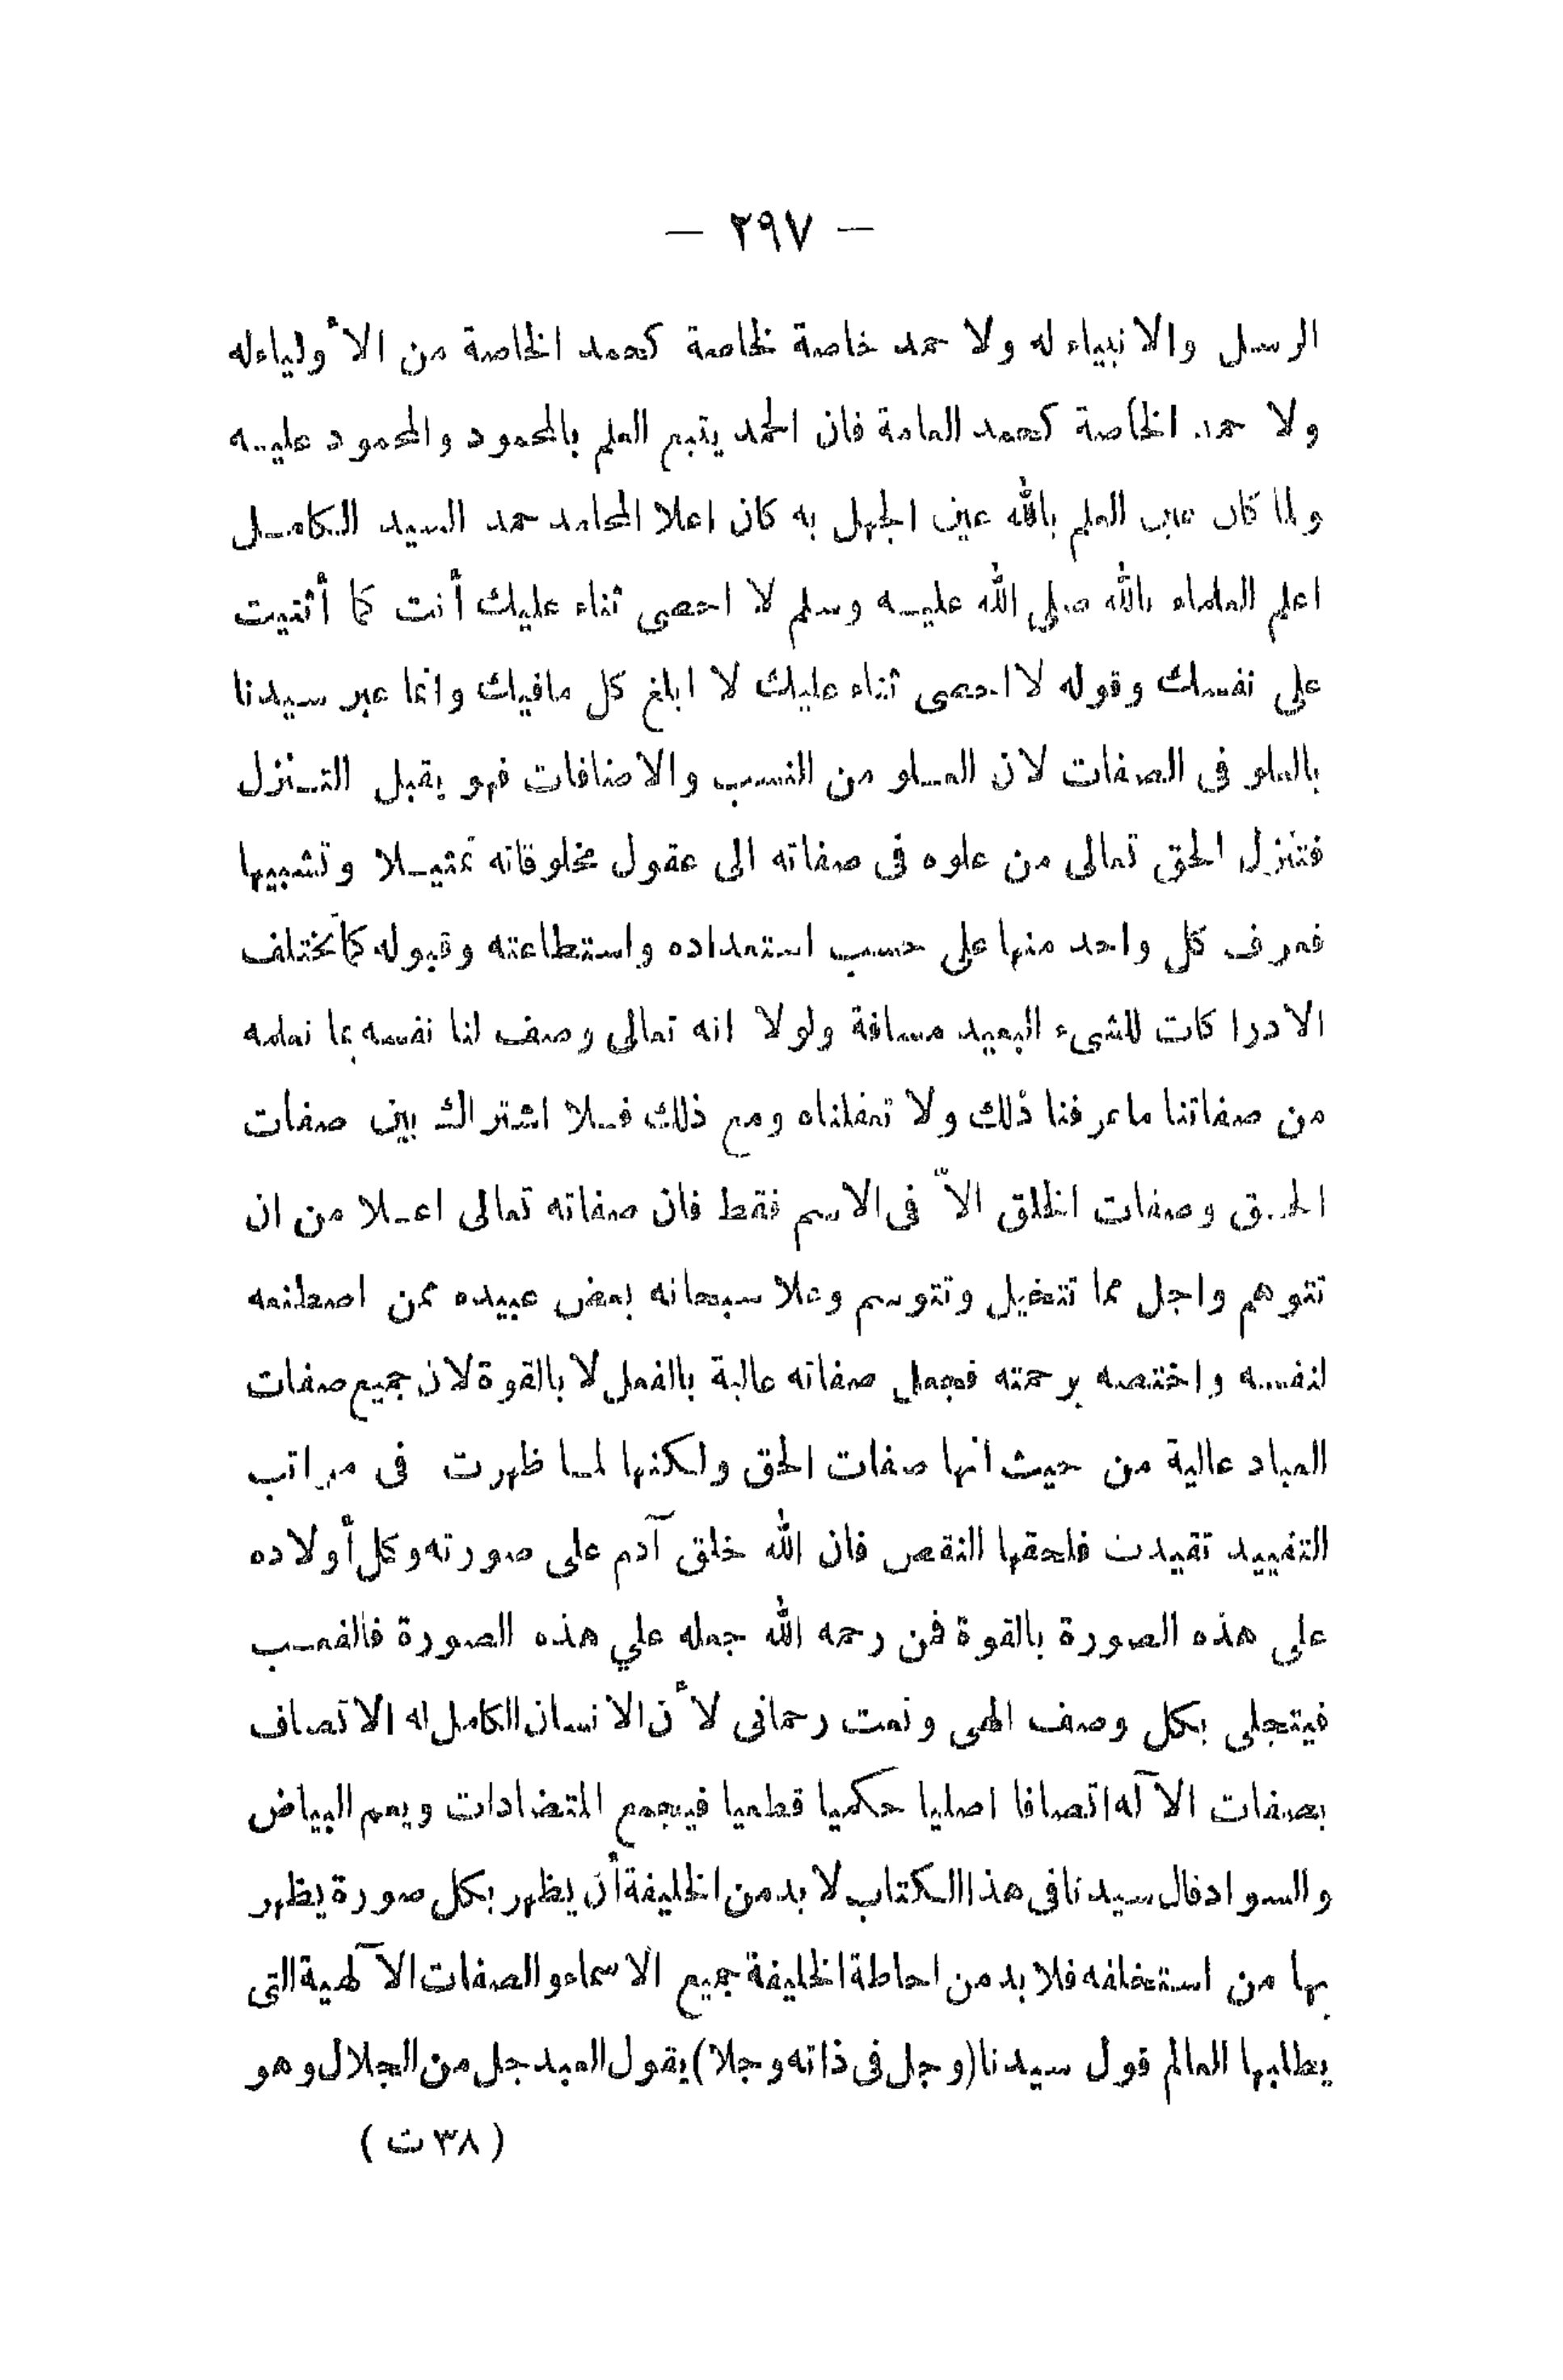 — ٢٩٧ —
الرسل والانبياء له ولا حمد خاصة لخاصة كحمد الخاصة من الأولياء له
ولا حمد الخاصة كحمد العامة فان الحمد يتبع العلم بالمحمود والمحمود عليه
ولما كان عين العلم بالله عين الجهل به كان اعلا المحامد حمد السيد الكامل
اعلم العلماء بالله صلى الله عليه وسلم لا احصى ثناء عليك أنت كما أثنيت
على نفسك وقوله لا احصى ثناء عليك لا ابلغ كل مافيك وانما عبر سيدنا
بالعلو فى الصفات لان العلو من النسب والاضافات فهو يقبل التنزل
فتنزل الحق تعالى من علوه فى صفاته الى عقول مخلوقاته تمثيلا وتشبيها
فعرف كل واحد منها على حسب استعداده واستطاعته وقبوله كما تختلف
الادراكات للشىء البعيد مسافة ولولا انه تعالى وصف لنا نفسه بما نعلمه
من صفاتنا ماعرفنا ذلك ولا تعقلناه ومع ذلك فلا اشتراك بين صفات
الحق وصفات الخلق الاّ فى الاسم فقط فان صفاته تعالى اعلا من ان
تتوهم واجل مما تتخيل وتتوسم وعلا سبحانه بعض عبيده ممن اصطنعه
لنفسه واختصه برحمته فجعل صفاته عالية بالفعل لا بالقوة لان جميع صفات
العباد عالية من حيث انها صفات الحق ولكنها لما ظهرت فى مراتب
التقييد تقيدت فلحقها النقص فان الله خلق آدم على صورته وكل أولاده
على هذه الصورة بالقوة فمن رحمه الله جعله علي هذه الصورة فالفعسب
فيتجلى بكل وصف الهى ونعت رحمانى لأن الانسان الكامل له الاتصاف
بصفات الآله اتصافا اصليا حكميا قطعيا فيجمع المتضادات ويعم البياض
والسواد قال سيدنا فى هذا الكتاب لا بد من الخليفة أن يظهر بكل صورة يظهر
بها من استخلفه فلا بد من احاطة الخليفة جميع الاسماء والصفات الآلهية التى
يطلبها العالم قول سيدنا (وجل فى ذاته وجلا) يقول العبد جل من الجلال وهو
(٣٨ ت)